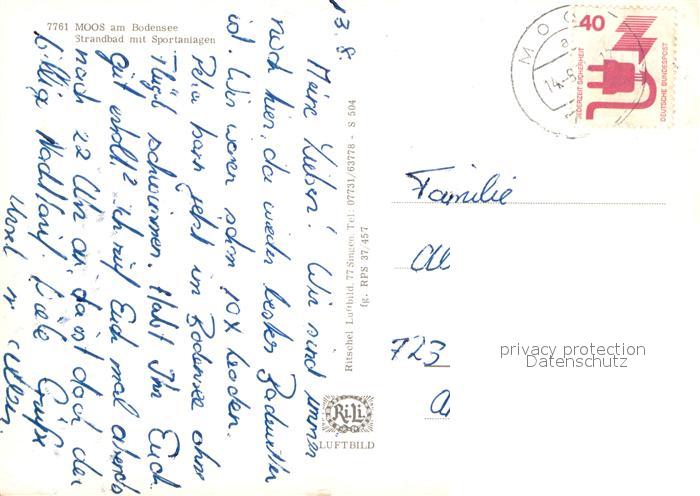 7761 MOOS am Bodensee
Strandbad mit Sportanlagen
13.8.
Meine Lieben! Wir sind immer
noch hier, da wieder bestes Badewetter
ist. Wir waren schon 10x baden.
Petra kann jetzt im Bodensee ohne
Flügel schwimmen. Habt Ihr Euch
gut erholt? Ich ruf Euch mal abends
nach 22 Uhr an, da ist doch der
billige Nachttarif. Liebe Grüße
Ritschel Luftbild, 77 Singen, Tel. 07731/63778 - S 504
fg. RPS 37/457
RiLi
LUFTBILD
MOOS
40
JEDERZEIT SICHERHEIT
DEUTSCHE BUNDESPOST
Familie
723
privacy protection
Datenschutz